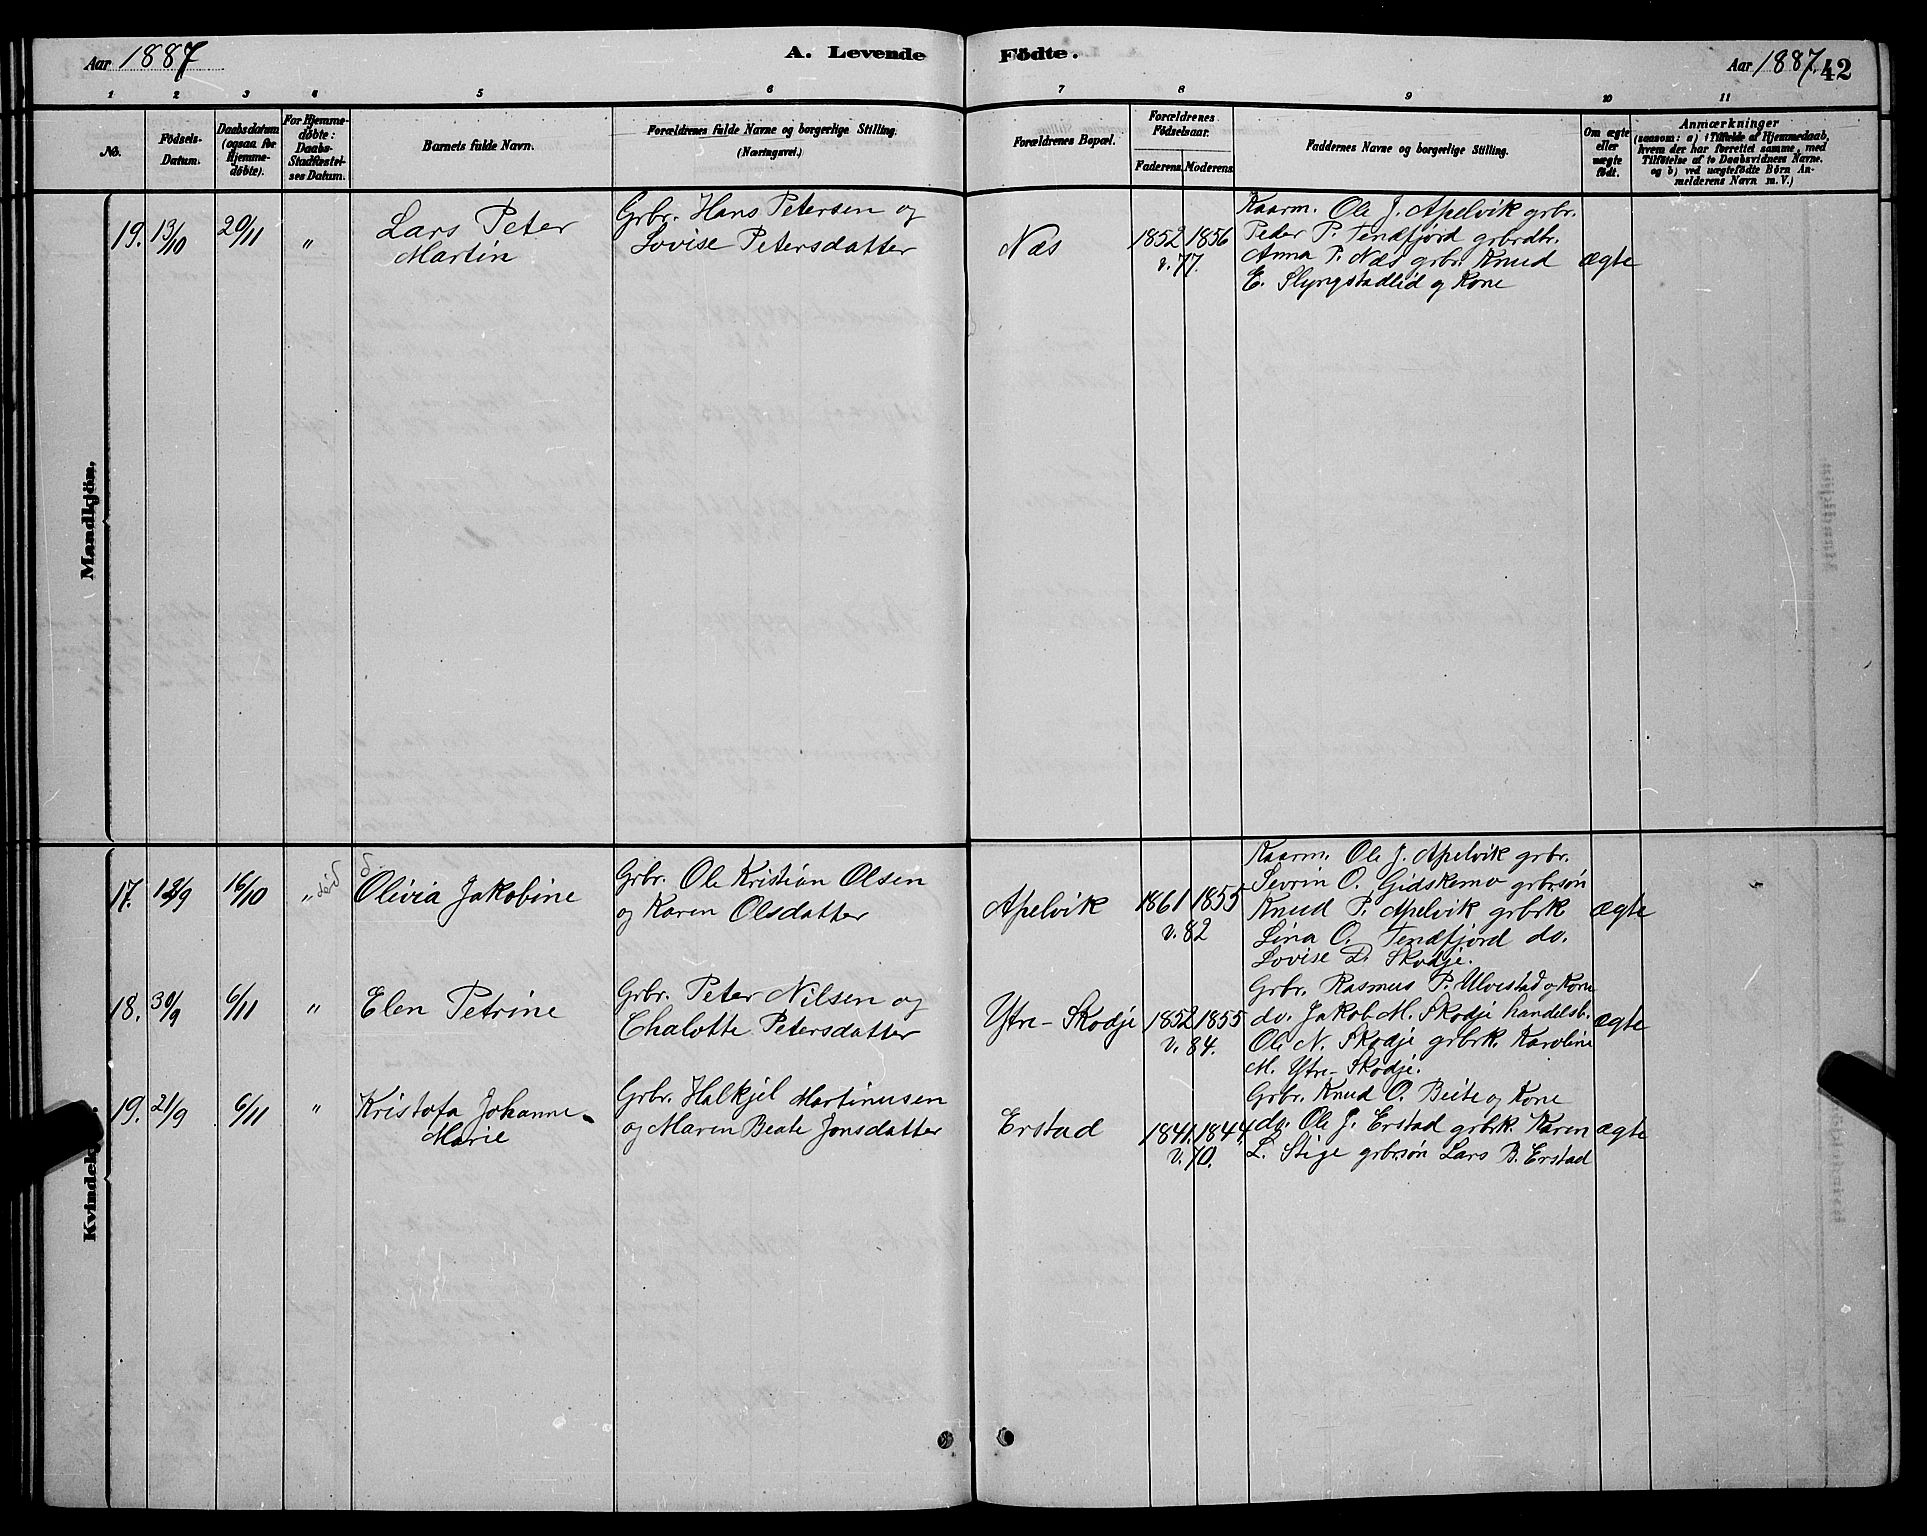 Aar 1887
A. Levende
Födte.
Aar 1887. 42
1 2 3 4 5 6 7 8 9 10 11
No.
Födsels-
Datum.
Daabsdatum
(ogsaa for
Hjemme-
døbte).
For Hjemme-
døbte:
Daabs-
Stadfæstel-
ses Datum.
Barnets fulde Navn.
Forældrenes fulde Navne og borgerlige Stilling.
(Næringsvei.)
Forældrenes Bopæl.
Forældrenes
Födselsaar.
Faderens. Moderens.
Faddernes Navne og borgerlige Stilling.
Om ægte
eller
uægte
födt.
Anmærkninger
(saasom: a) i Tilfælde af Hjemmedaab,
hvem der har forrettet samme, med
Tilföielse af to Daabsvidners Navne.
og b) ved uægtefödte Börn An-
melderens Navn m. V.)
Mandkjön.
19. 13/10 20/11 " Lars Peter
Martin
Grbr. Hans Petersen og
Lovise Petersdatter
Næs
1852 1856
v. 77.
Kaarm. Ole J. Apelvik grbr.
Peder P. Tenefjord grbrdtr.
Anna P. Næs grbr. Knud
E. Slyngstadlid og Kone
ægte
Kvindekj.
17. 12/9 16/10 " død Olivia Jakobine
Grbr. Ole Kristian Olsen
og Karen Olsdatter
Apelvik
1861 1855
v. 82
Kaarm. Ole J. Apelvik grbr.
Sevrin O. Gidskemo grbrsøn
Knud P. Apelvik grbrk
Lina O. Tenefjord do.
Lovise D. Skodje.
ægte
18. 30/9 6/11 " Elen Petrine
Grbr. Peter Nilsen og
Chalotte Petersdatter
Ytre-Skodje
1852 1855
v. 84.
Grbr. Rasmus P. Ulvestad og Kone
do. Jakob M. Skodje handelsb.
Ole N. Skodje grbrk. Karoline
M. Ytre-Skodje.
ægte
19. 21/9 6/11 " Kristofa Johanne
Marie
Grbr. Halkjel Martinusen
og Maren Beate Jonsdatter
Erstad
1841. 1844.
v. 70.
Grbr. Knud O. Beite og Kone
do. Ole J. Erstad grbrk Karen
L. Stige grbrsøn Lars B. Erstad
ægte